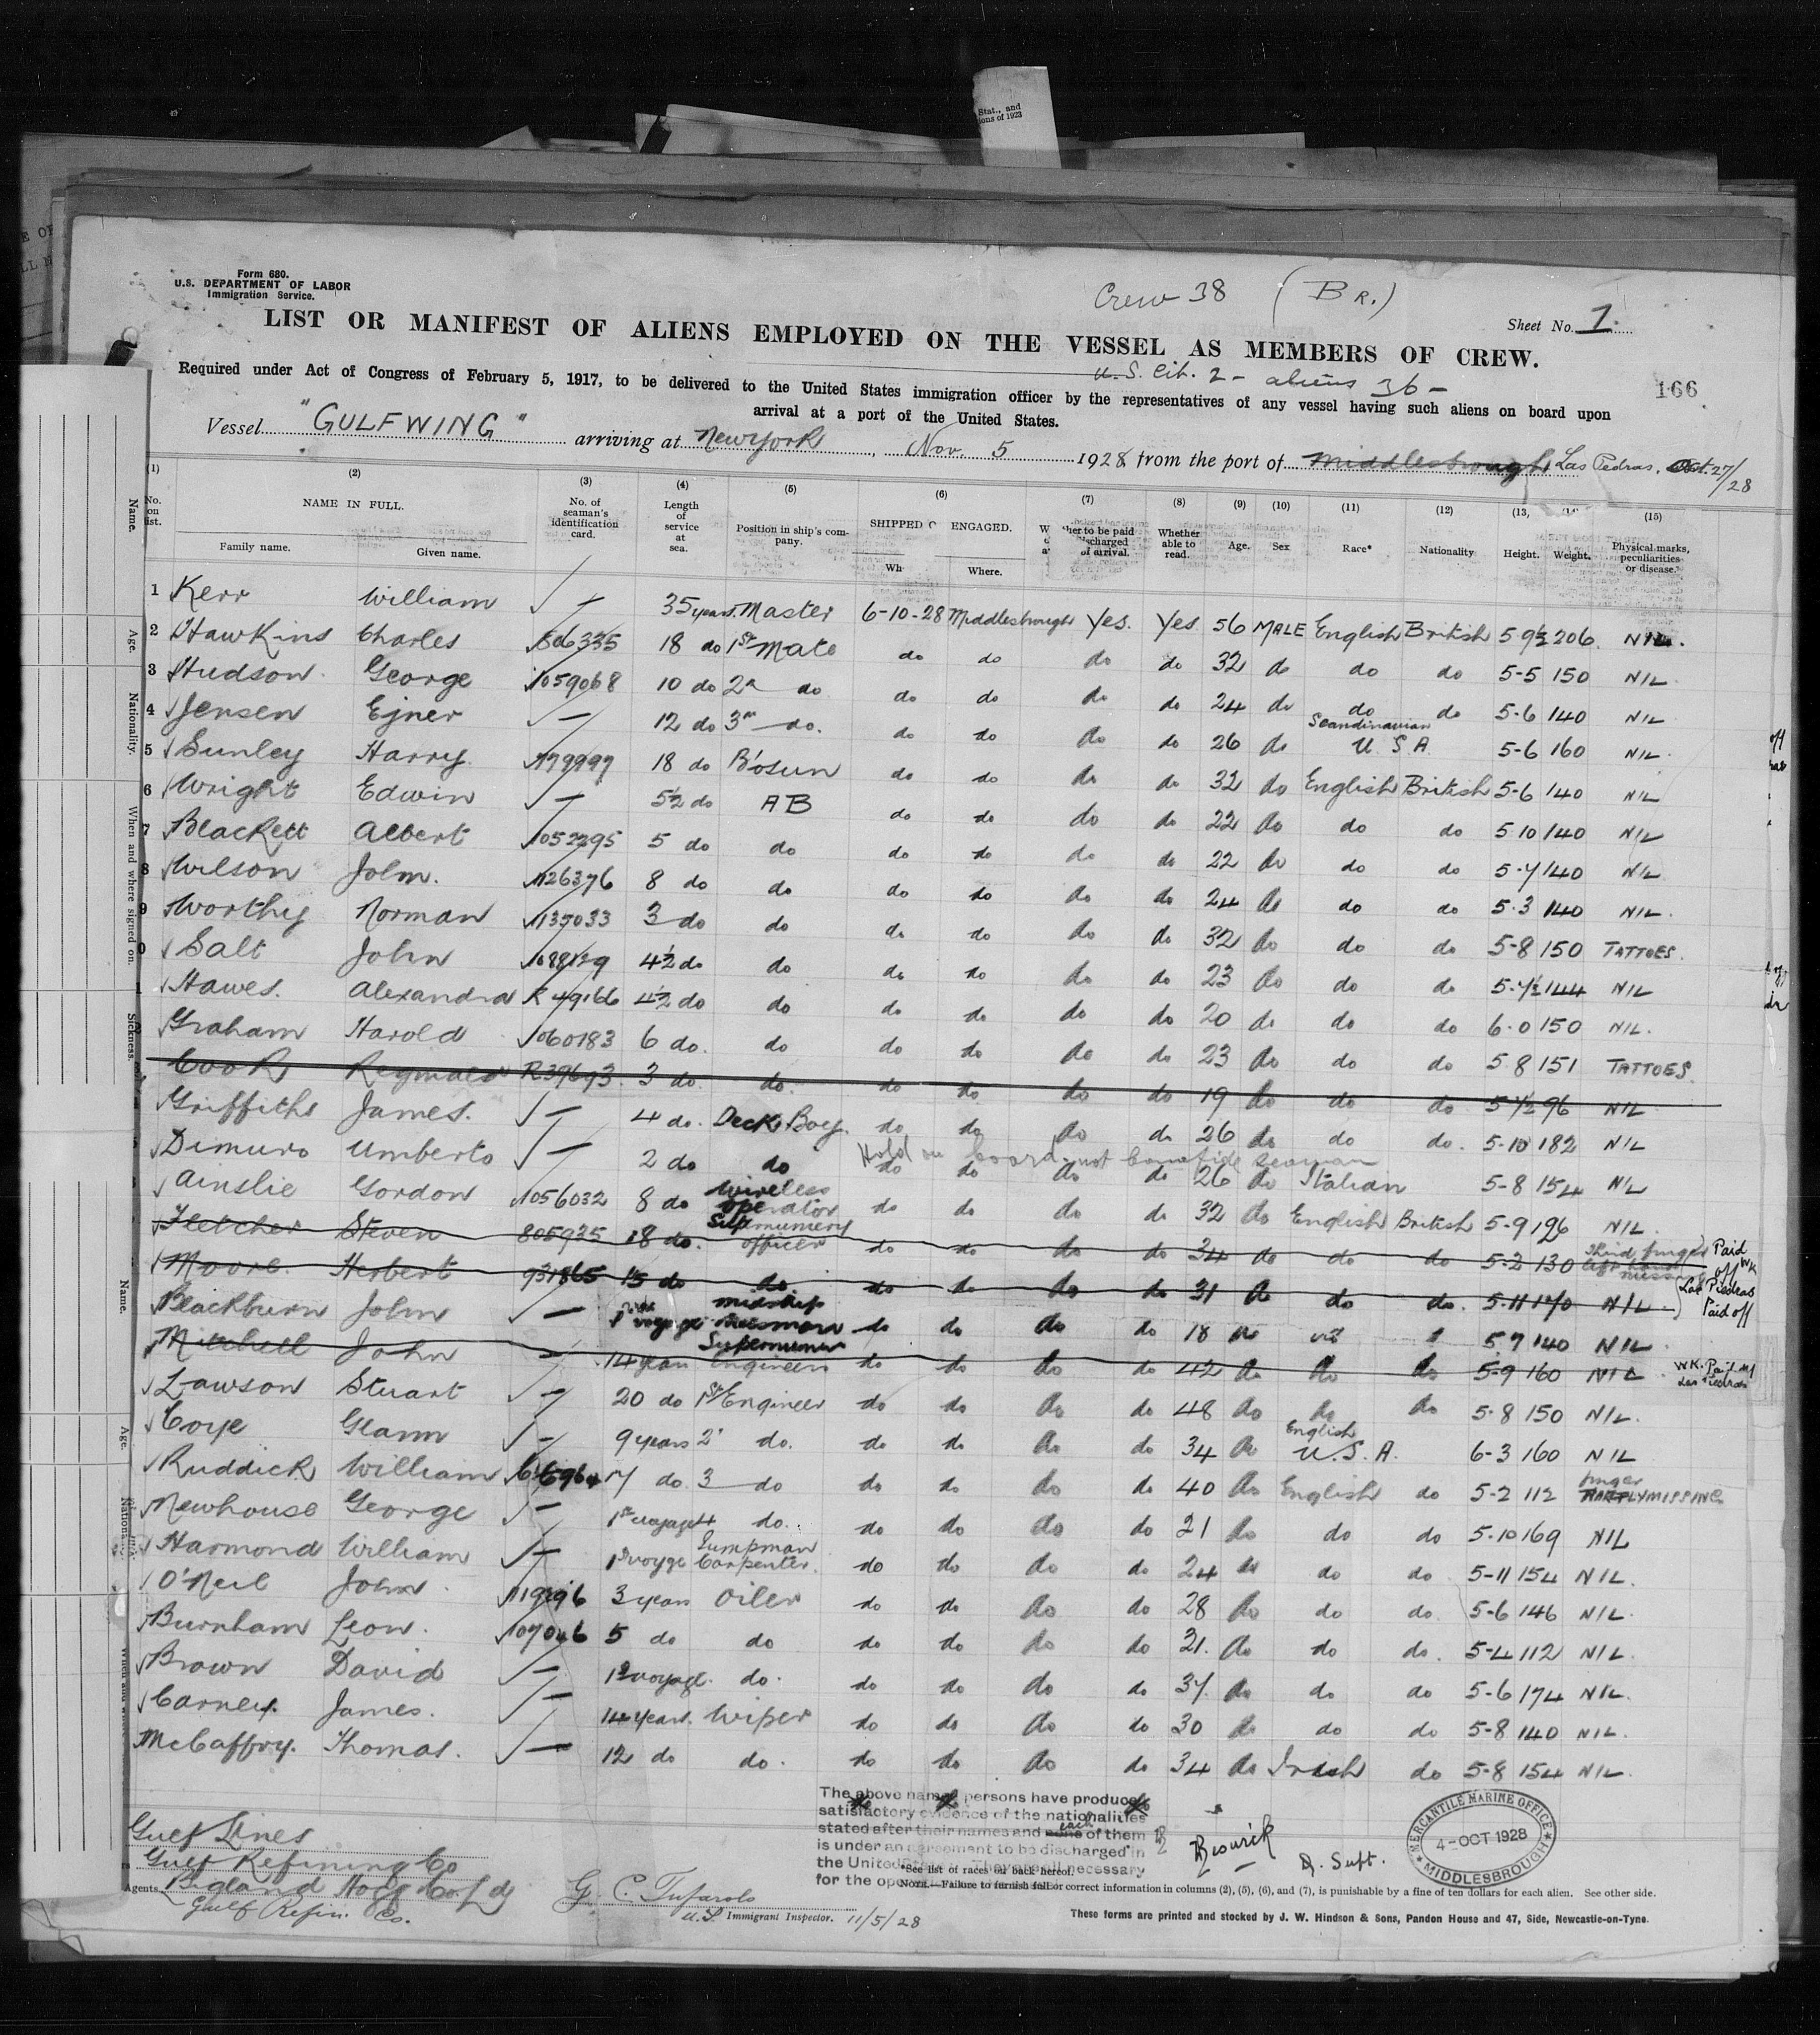 Stat., and
ions of 1923
Form 680.
U.S. DEPARTMENT OF LABOR
Immigration Service.
Crew 38 (BR.)
Sheet No. 1.
LIST OR MANIFEST OF ALIENS EMPLOYED ON THE VESSEL AS MEMBERS OF CREW.
U.S. Cit. 2 - aliens 36 -
166
Required under Act of Congress of February 5, 1917, to be delivered to the United States immigration officer by the representatives of any vessel having such aliens on board upon
arrival at a port of the United States.
Vessel "GULFWING" arriving at New York, Nov. 5 1928 from the port of Middlesbrough Las Pedras, Oct. 27/28
(1) (2) (3) (4) (5) (6) (7) (8) (9) (10) (11) (12) (13) (14) (15)
No. on list. NAME IN FULL. No. of seaman's identification card. Length of service at sea. Position in ship's company. SHIPPED O ENGAGED. Whether able to read. Age. Sex Race* Nationality Height. Weight. Physical marks, peculiarities or disease.
Family name. Given name. Wh Where.
1 Kerr William — 35 years Master 6-10-28 Middlesbrough Yes. Yes 56 MALE English British 5 9½ 206 NIL.
2 Hawkins Charles 806335 18 do 1st Mate do do do do 32 do do do 5-5 150 NIL
3 Hudson George 1059068 10 do 2n do do do do do 24 do do do 5-6 140 NIL
4 Jensen Ejner — 12 do 3rd do. do do do do 26 do Scandinavian U.S.A. 5-6 160 NIL
5 Sunley Harry 179997 18 do Bosun do do do do 32 do English British 5-6 140 NIL
6 Wright Edwin — 5½ do AB do do do do 22 do do do 5 10 140 NIL
7 Blackett Albert 1052295 5 do do do do do do 22 do do do 5-7 140 NIL
8 Wilson John. 1126376 8 do do do do do do 24 do do do 5.3 140 NIL.
9 Worthy Norman 1135033 3 do do do do do do 32 do do do 5-8 150 TATTOES.
0 Salt John 4½ do do do do do do 23 do do do 5-7½ 144 NIL
1 Hawes. Alexandra R 49166 4½ do do do do do do 20 do do do 6.0 150 NIL.
Graham Harold 1060183 6 do. do do do do do 23 do do do 5 8 151 TATTOES.
Cook Reginald R39693. 3 do. do. do do do do 19 do do do 5 7½ 96 NIL
Griffiths James. — 4 do. Deck Boy. do do do do 26 do do do. 5-10 182 NIL
Hold on board - not bonafide seaman
Dimuro Umberto — 2 do do do do do do 26 do Italian 5-8 154 NIL
Ainslie Gordon 1056032 8 do Wireless operator do do do do 32 do English British 5-9 126 NIL.
Fletcher Steven 805935 18 do. Supernumery officer do do do do 34 do do do 5-2 130 third finger left hand missing Paid off WK
Moore. Herbert 931865 15 do do do do do do 31 do do do. 5-11 170 NIL. Las Piedras Paid off
Blackburn John — 1st voyage midship messman do do do do 18 do 5 7 140 NIL.
Mitchell John — 14 years Supernumer Engineer do do do do 42 do do do 5-9 160 NIL WK. Paid off Las Piedras
Lawson Stuart — 20 do 1st Engineer do do do do 48 do do do 5.8 150 NIL.
Coye Glann — 9 years 2' do. do do do do 34 do English U.S.A. 6-3 160 NIL
Ruddick William 7 do. 3 do do do do do 40 do English do 5-2 112 finger PARTLY MISSING
Newhouse George — 1st voyage 4 do. do do do do 21 do do do 5.10 169 NIL
Harmond William — 1st voyge Pumpman Carpenter. do do do do 24 do do do 5-11 154 NIL.
O'Neil John. 3 years Oiler do do do do 28 do do do. 5-6 146 NIL.
Burnham Leon. 107046 5 do do do do do do 21. do do do. 5-4 112 NIL.
Brown David — 1st voyage. do. do do do do 37. do do do 5-6 174 NIL.
Carney. James. — 14 years. Wiper do do do do 30 do do do 5-8 140 NIL.
McCaffry. Thomas. — 12 do do. do do do do 34 do Irish do 5-8 154 NIL.
The above named persons have produced
satisfactory evidence of the nationalities
stated after their names and each of them
is under an agreement to be discharged in
the United States
for the oper
Beswick
D. Supt.
MERCANTILE MARINE OFFICE
4-OCT 1928
MIDDLESBROUGH
Gulf Lines
Gulf Refining Co
Agents
Gulf Refin. Co.
G. C. Tufarolo
U.S. Immigrant Inspector. 11/5/28
*See list of races on back hereof.
NOTE.—Failure to furnish full or correct information in columns (2), (5), (6), and (7), is punishable by a fine of ten dollars for each alien. See other side.
These forms are printed and stocked by J. W. Hindson & Sons, Pandon House and 47, Side, Newcastle-on-Tyne.
Name.
Age.
Nationality.
When and where signed on.
Sickness.
Name.
Age.